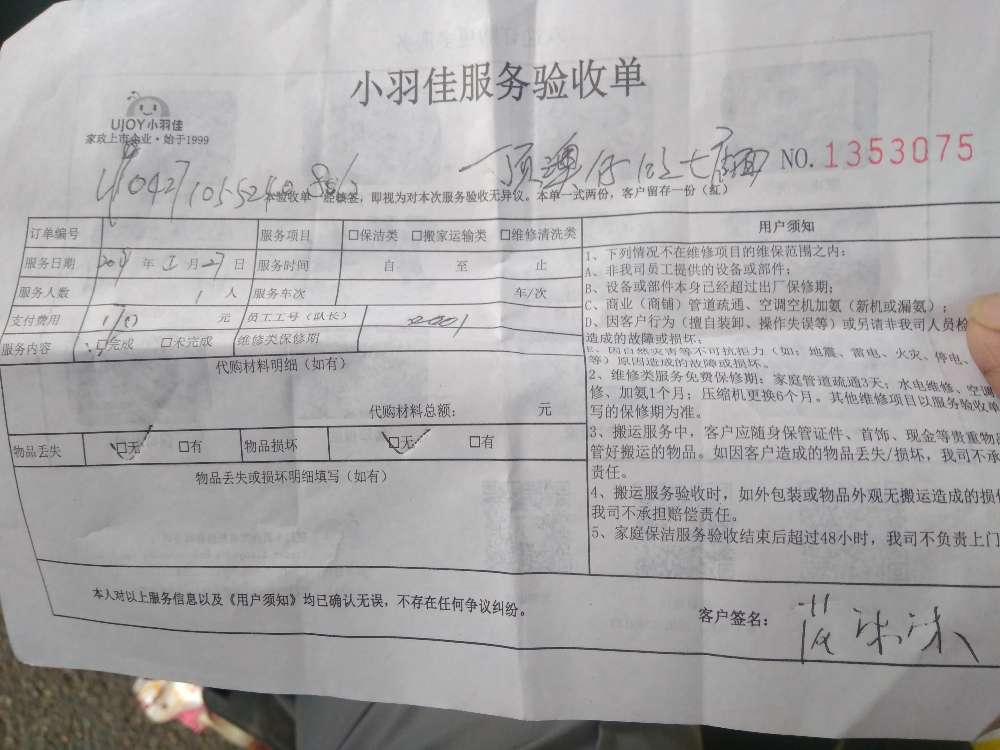 小羽佳服务验收单
UJOY小羽佳
家政上市企业·始于1999
NO.1353075
本验收单一经核签，即视为对本次服务验收无异议。本单一式两份，客户留存一份（红）
订单编号 服务项目 □保洁类 □搬家运输类 □维修清洗类
服务日期 年 月 27 日 服务时间 自 至 止
服务人数 1 人 服务车次 车/次
支付费用 元 员工工号（队长）
服务内容 □完成 □未完成 维修类保修期
代购材料明细（如有）
代购材料总额： 元
物品丢失 □无 □有 物品损坏 □无 □有
物品丢失或损坏明细填写（如有）
用户须知
1、下列情况不在维修项目的维保范围之内：
A、非我司员工提供的设备或部件；
B、设备或部件本身已经超过出厂保修期；
C、商业（商铺）管道疏通、空调空机加氨（新机或漏氨）；
D、因客户行为（擅自装卸、操作失误等）或另请非我司人员检
造成的故障或损坏；
E、因自然灾害等不可抗拒力（如：地震、雷电、火灾、停电、
等）原因造成的故障或损坏。
2、维修类服务免费保修期：家庭管道疏通3天；水电维修、空调
修、加氨1个月；压缩机更换6个月。其他维修项目以服务验收单
写的保修期为准。
3、搬运服务中，客户应随身保管证件、首饰、现金等贵重物
管好搬运的物品。如因客户造成的物品丢失/损坏，我司不承
责任。
4、搬运服务验收时，如外包装或物品外观无搬运造成的损
我司不承担赔偿责任。
5、家庭保洁服务验收结束后超过48小时，我司不负责上门
本人对以上服务信息以及《用户须知》均已确认无误，不存在任何争议纠纷。
客户签名：